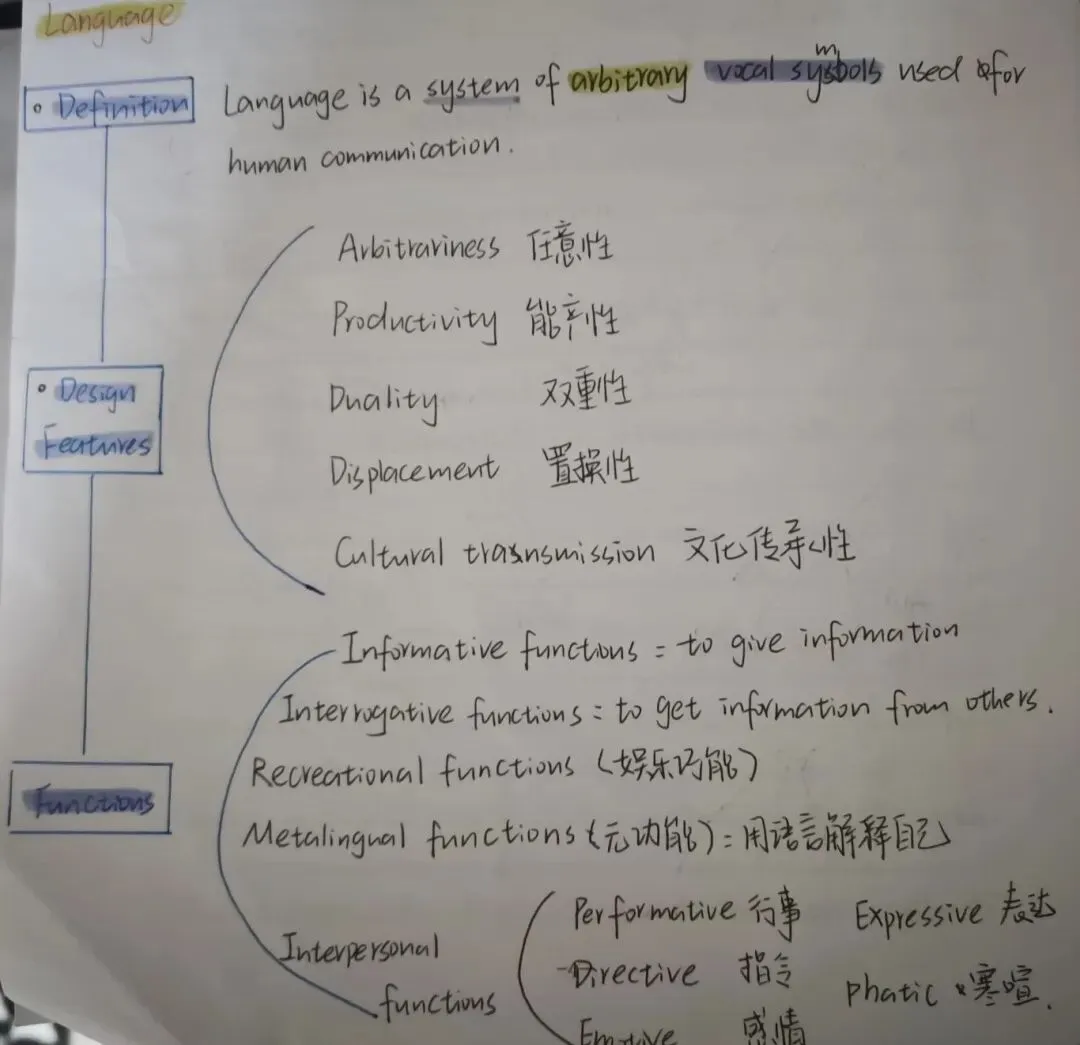 Language
• Definition
Language is a system of arbitrary vocal symbols used for
human communication.
Arbitrariness 任意性
Productivity 能产性
• Design
Features
Duality 双重性
Displacement 置换性
Cultural transmission 文化传承性
Informative functions = to give information
Interrogative functions = to get information from others.
Recreational functions (娱乐功能)
Functions
Metalingual functions (元功能) = 用语言解释自己
Interpersonal
functions
Performative 行事 Expressive 表达
Directive 指令 Phatic 寒暄.
Emotive 感情